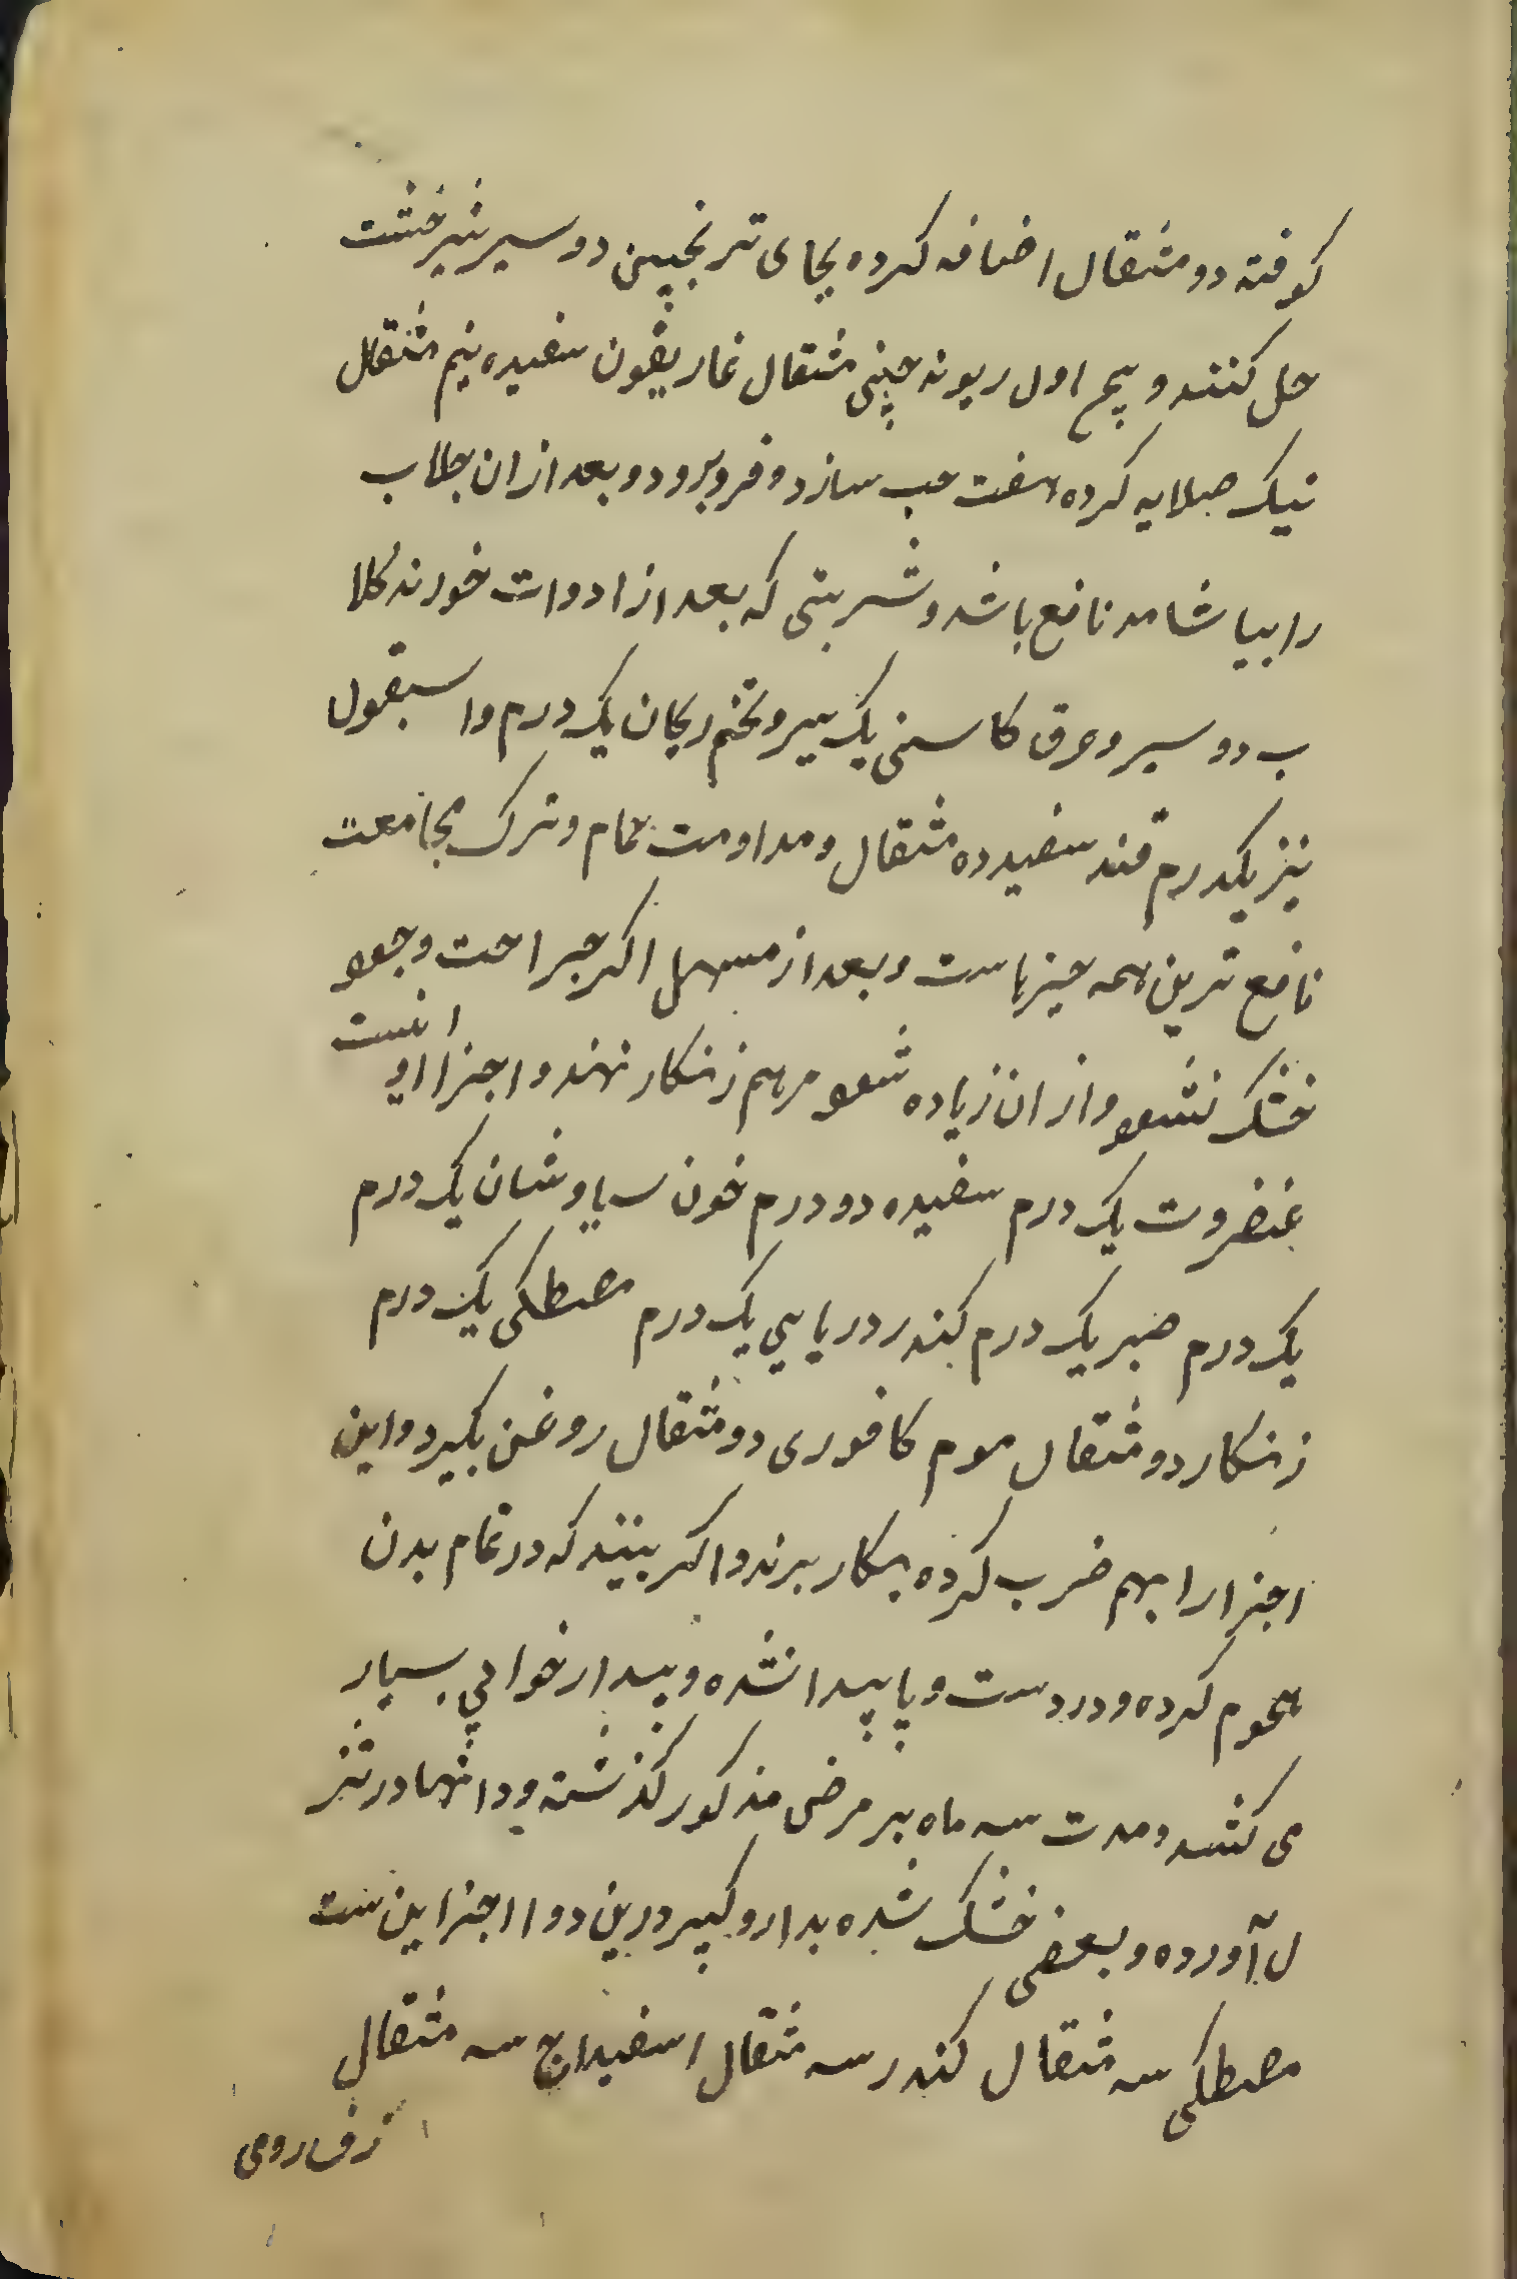 کوفته دو مثقال اضافه کرده بجای ترنجبین دو سیر شیرخشت
حل کنند و پیچ اول ریوند چینی مثقال غاریقون سفیده نیم مثقال
نیک صلایه کرده هفت حب سازد و فرو برد و بعد از ان جلاب
را بیاشامد نافع باشد و شربتی که بعد از ادوات خورند کلا
ب دو سیر و عرق کاسنی یک سیر و تخم ریحان یک درم و اسبقول
نیز یکدرم قند سفید ده مثقال و مداومت حمام و ترک مجامعت
نافع ترین همه چیزهاست و بعد از مسهل اکر جراحت وجعو
خشک نشود و از ان زیاده شود مرهم زنکار نهند و اجزا او اینست
عنضروت یک درم سفیده دو درم خون سیاوشان یک درم
یک درم صبر یک درم کندر دریایی یک درم مصطکی یک درم
زنکار دو مثقال موم کافوری دو مثقال روغن بکیرد و این
اجزا را بهم ضرب کرده بکار برند و اکر بینند که در تمام بدن
هجوم کرده و در دست و پا پیدا نشده و بیدار خوابی بسیار
می کشد و مدت سه ماه بر مرض مذکور کذشته و دانها در تنز
ل آورده و بعضی خشک شده بدارو کیرد درین دوا اجزا این ست
مصطکی سه مثقال کندر سه مثقال اسفیداج سه مثقال
زفت رومی